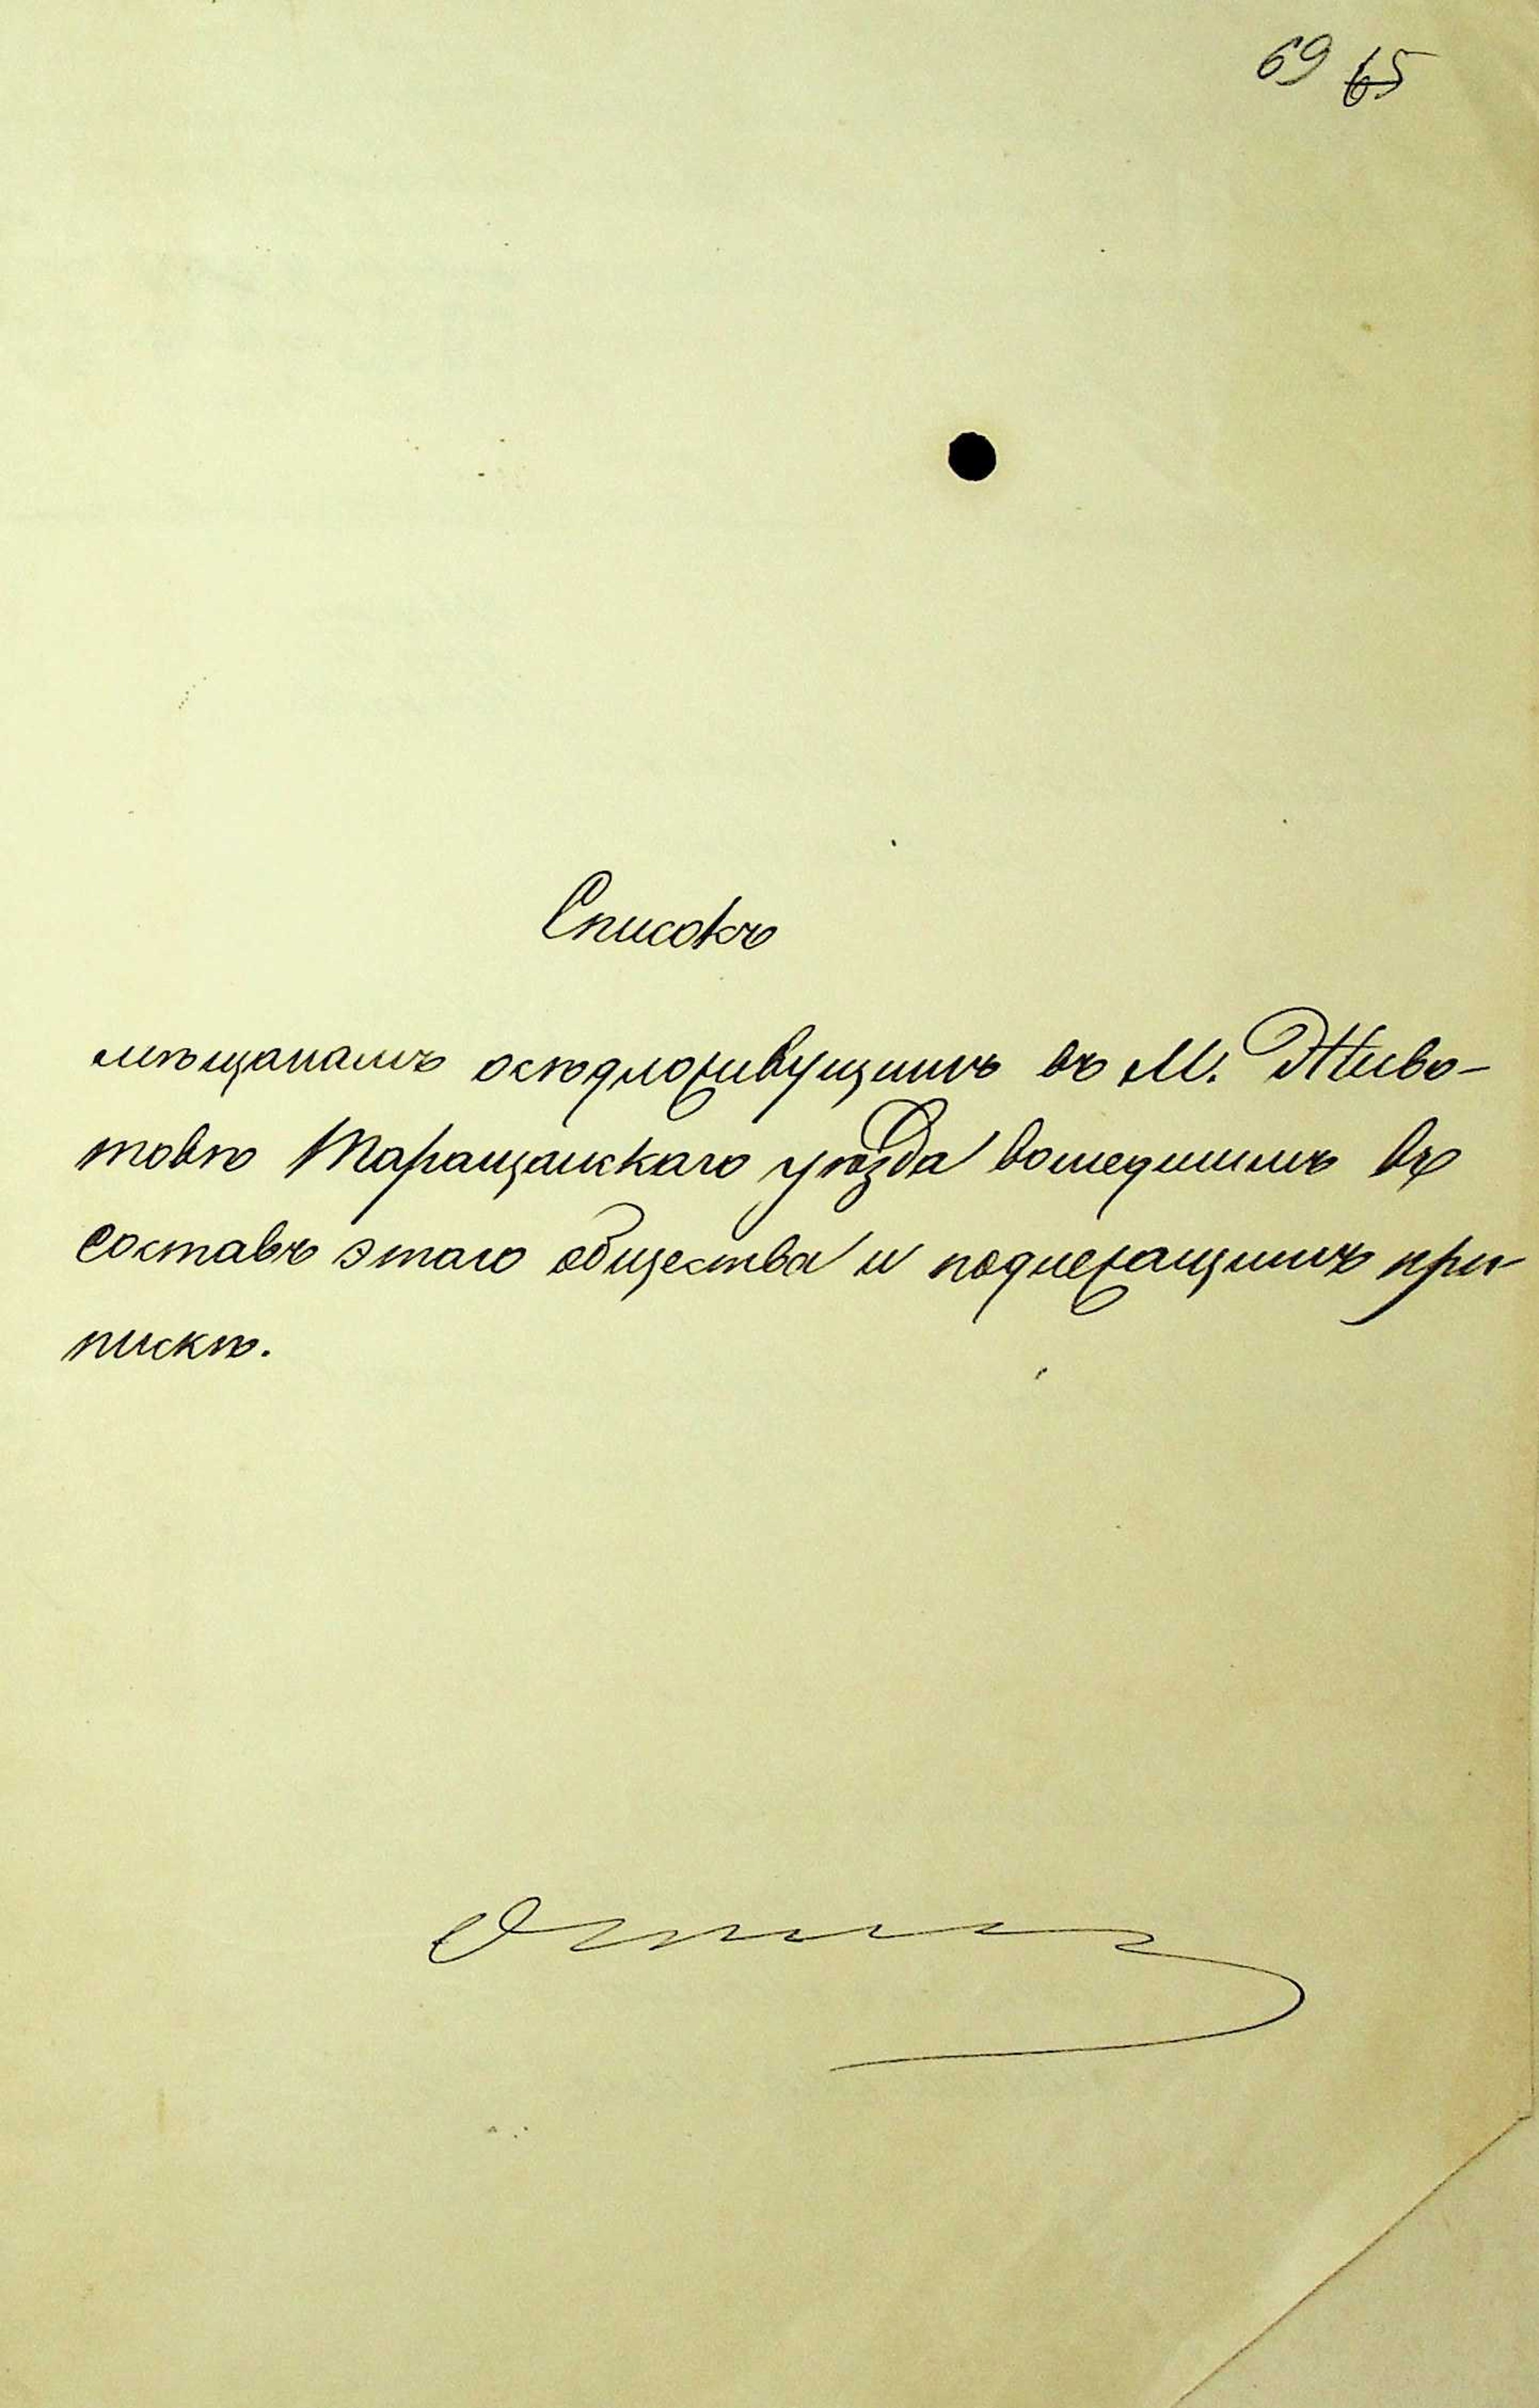 69 65
Списокъ
мѣщанамъ осѣдложивущимъ въ М. Живо-
товѣ Таращанскаго уѣзда вошедшимъ въ
составъ этаго общества и подлежащимъ при-
пискѣ.